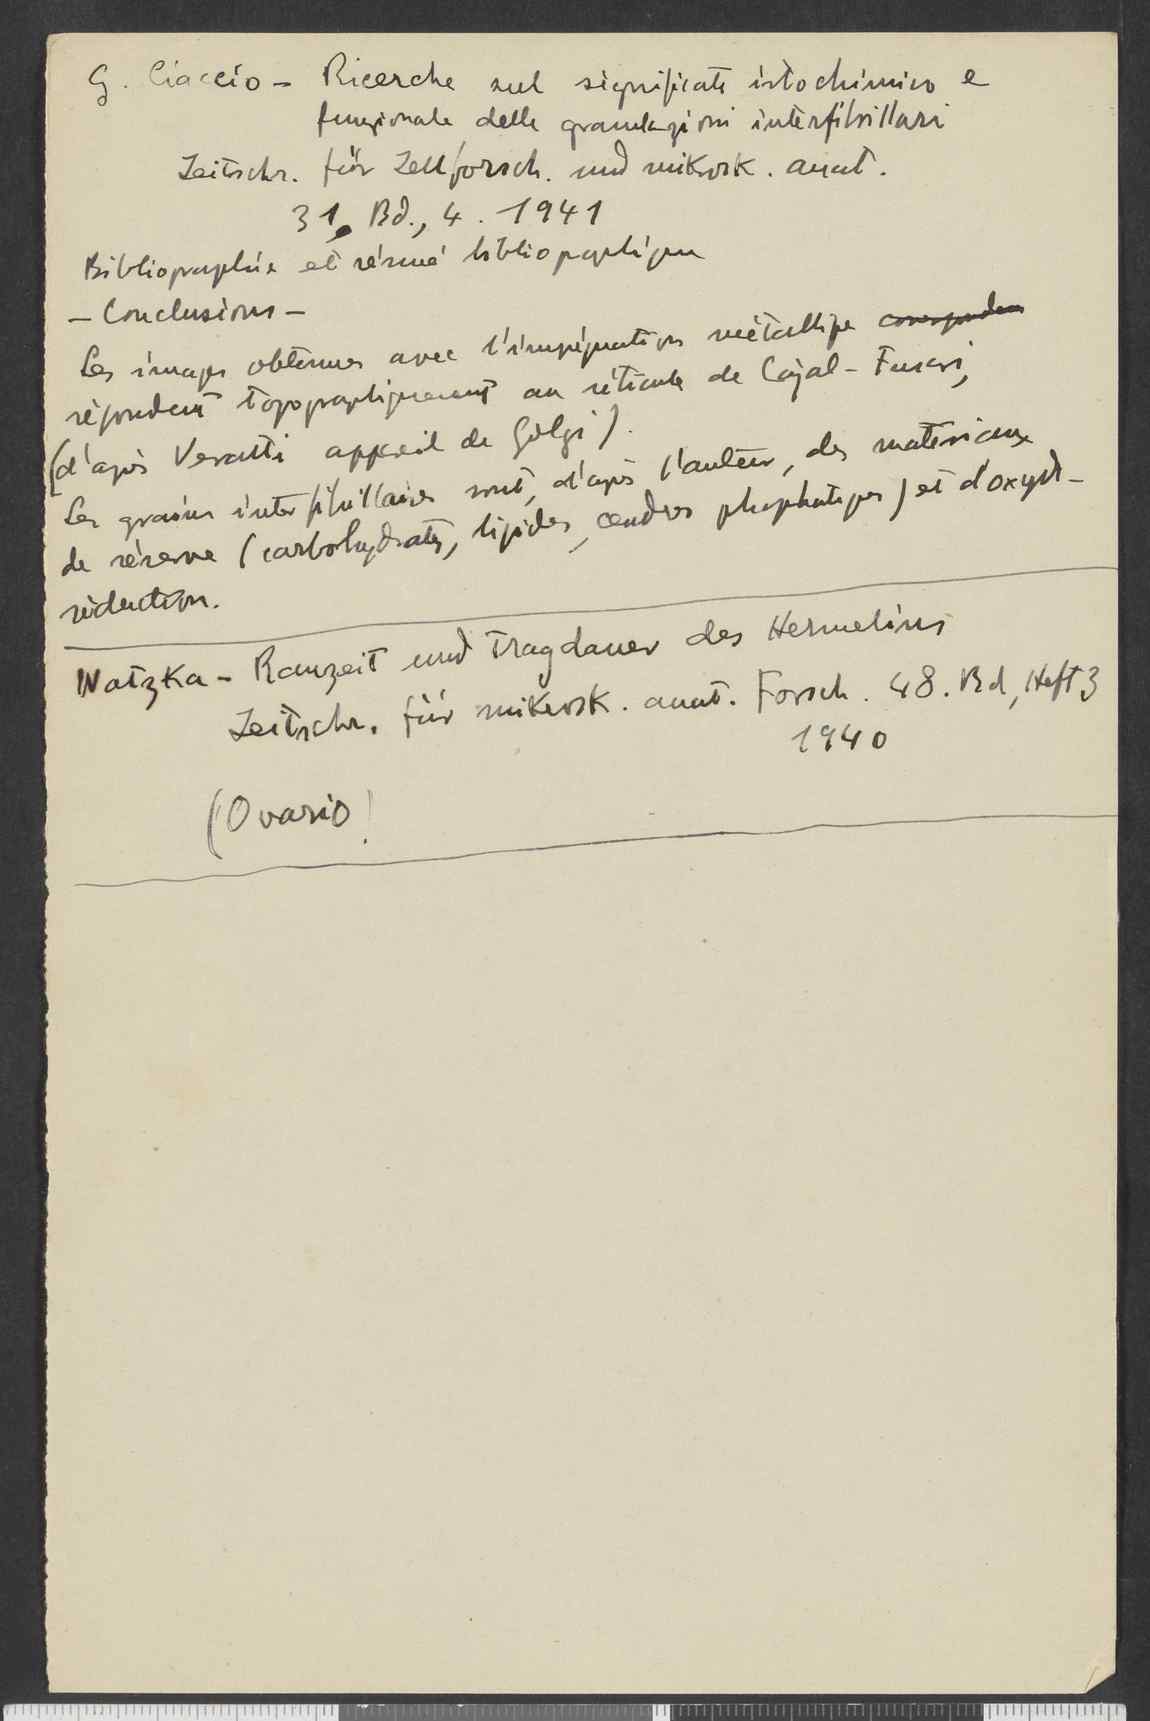 G. Ciaccio - Ricerche sul significato istochimico e
funzionale delle granulazioni interfibrillari
Zeitschr. für Zellforsch. und mikrosk. anat.
31. Bd., 4. 1941
Bibliographie et résumé bibliographique
- Conclusions -
Les images obtenues avec l'imprégnation métallique correspondent
répondent topographiquement au réticule de Cajal - Fusari,
(d'après Veratti appareil de Golgi).
Les grains interfibrillaires sont, d'après l'auteur, des matériaux
de réserve (carbohydrates, lipides, cendres phosphatiques) et d'oxyd-
réduction.
Watzka - Ranzeit und Tragdauer des Hermelins
Zeitschr. für mikrosk. anat. Forsch. 48. Bd, Heft 3
1940
(Ovario!